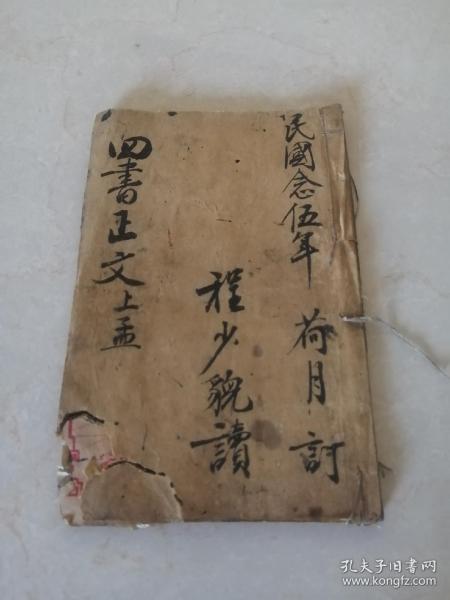 民國念伍年 荷月 訂
程少貌讀
四書正文上孟
孔夫子旧书网
www.kongfz.com